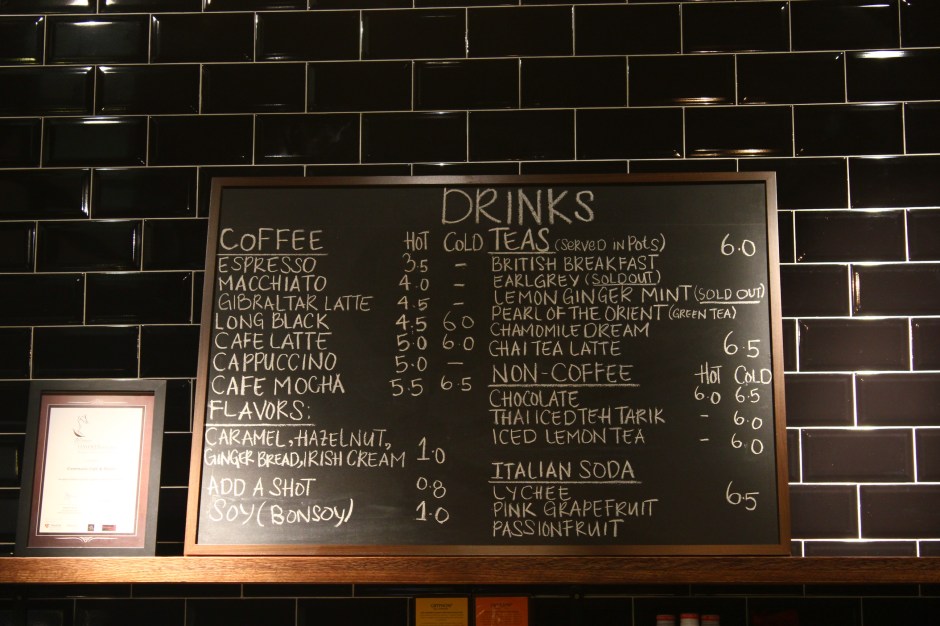 DRINKS
COFFEE HOT COLD
ESPRESSO 3.5 -
MACCHIATO 4.0 -
GIBRALTAR LATTE 4.5 -
LONG BLACK 4.5 6.0
CAFE LATTE 5.0 6.0
CAPPUCCINO 5.0 -
CAFE MOCHA 5.5 6.5
FLAVORS:
CARAMEL, HAZELNUT,
GINGER BREAD, IRISH CREAM 1.0
ADD A SHOT 0.8
SOY (BONSOY) 1.0
TEAS (SERVED IN POTS) 6.0
BRITISH BREAKFAST
EARLGREY (SOLD OUT)
LEMON GINGER MINT (SOLD OUT)
PEARL OF THE ORIENT (GREEN TEA)
CHAMOMILE DREAM
CHAI TEA LATTE 6.5
NON-COFFEE HOT COLD
CHOCOLATE 6.0 6.5
THAI ICED TEH TARIK - 6.0
ICED LEMON TEA - 6.0
ITALIAN SODA
LYCHEE 6.5
PINK GRAPEFRUIT
PASSIONFRUIT